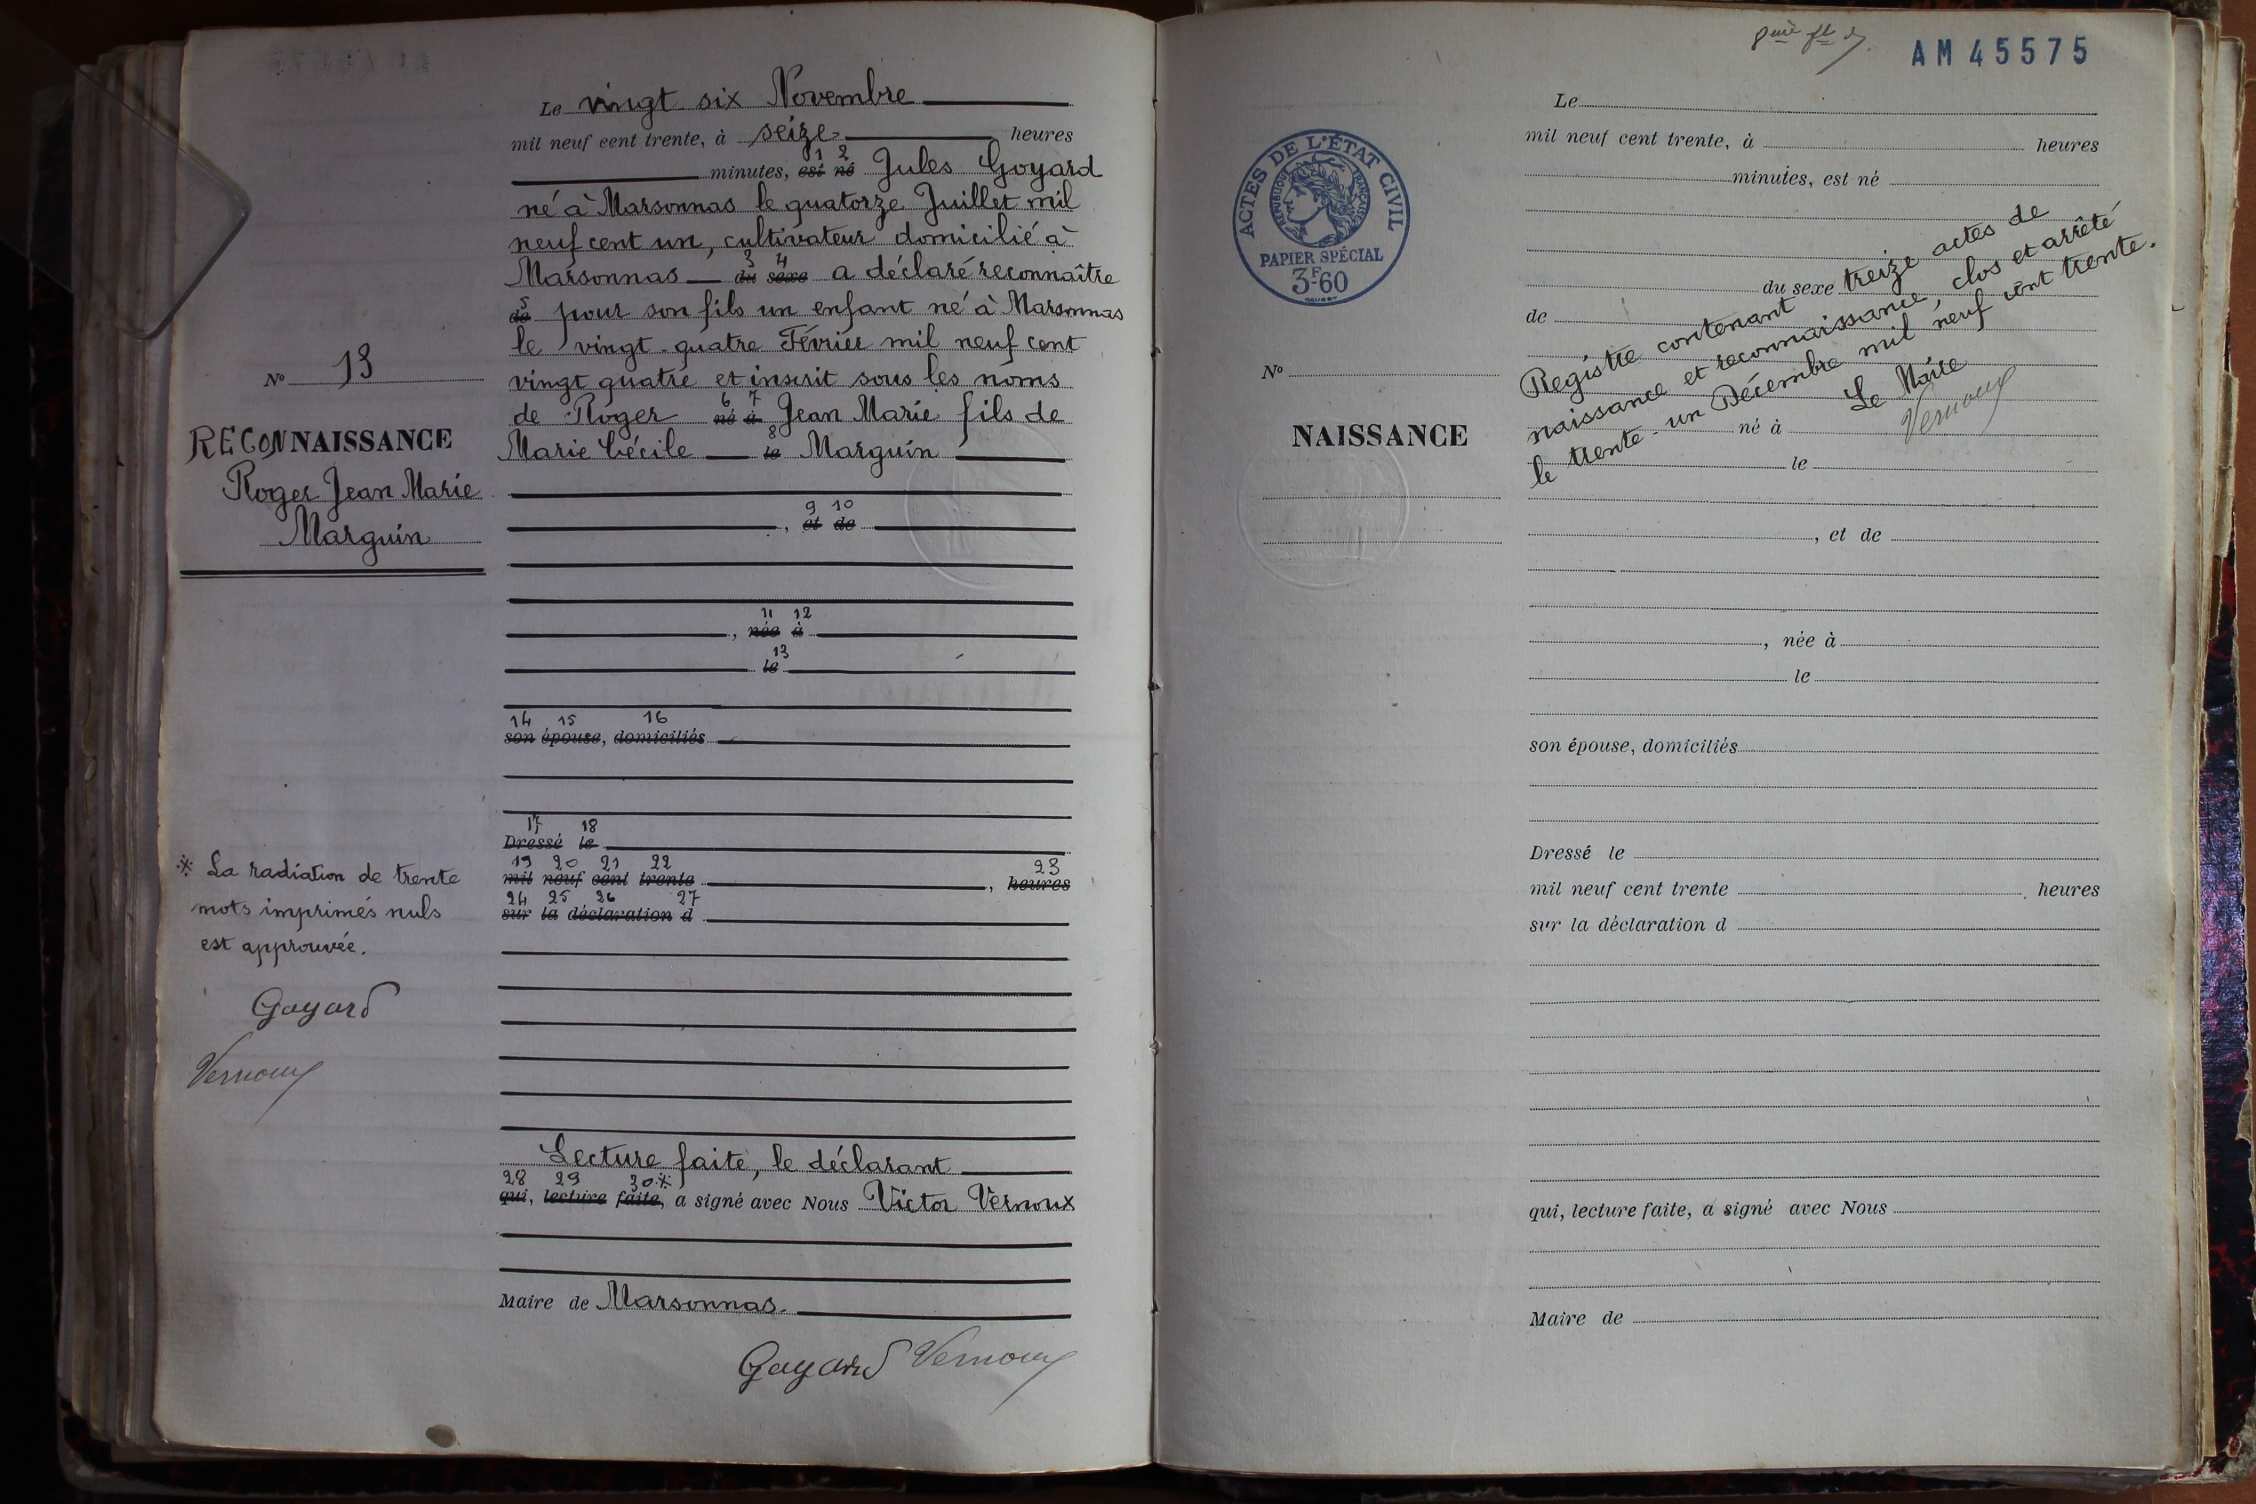 Le vingt six Novembre
mil neuf cent trente, à seize heures
minutes, est 1 né 2 Jules Goyard
né à Marsonnas le quatorze Juillet mil
neuf cent un, cultivateur domicilié à
Marsonnas du 3 sexe 4 a déclaré reconnaître
de 5 pour son fils un enfant né à Marsonnas
le vingt-quatre Février mil neuf cent
vingt quatre et inscrit sous les noms
de Roger né 6 à 7 Jean Marie fils de
Marie Cécile le 8 Marguin
, et 9 de 10
, née 11 à 12
le 13
son 14 épouse 15, domiciliés 16
Dressé 17 le 18
mil 19 neuf 20 cent 21 trente 22, heures 23
sur 24 la 25 déclaration 26 d 27
Lecture faite, le déclarant
qui 28, lecture 29 faite 30 *, a signé avec Nous Victor Vernoux
Maire de Marsonnas.
Goyard Vernoux
No 13
RECONNAISSANCE
Roger Jean Marie
Marguin
* La radiation de trente
mots imprimés nuls
est approuvée.
Goyard
Vernoux
AM 45575
ACTES DE L'ÉTAT CIVIL
RÉPUBLIQUE FRANÇAISE
PAPIER SPÉCIAL
3F-60
No
NAISSANCE
Le
mil neuf cent trente, à heures
minutes, est né
du sexe
de
Registre contenant treize actes de
naissance et reconnaissance, clos et arrêté
le trente-un Décembre mil neuf cent trente.
Le Maire
Vernoux
né à
le
, et de
, née à
le
son épouse, domiciliés
Dressé le
mil neuf cent trente heures
sur la déclaration d
qui, lecture faite, a signé avec Nous
Maire de